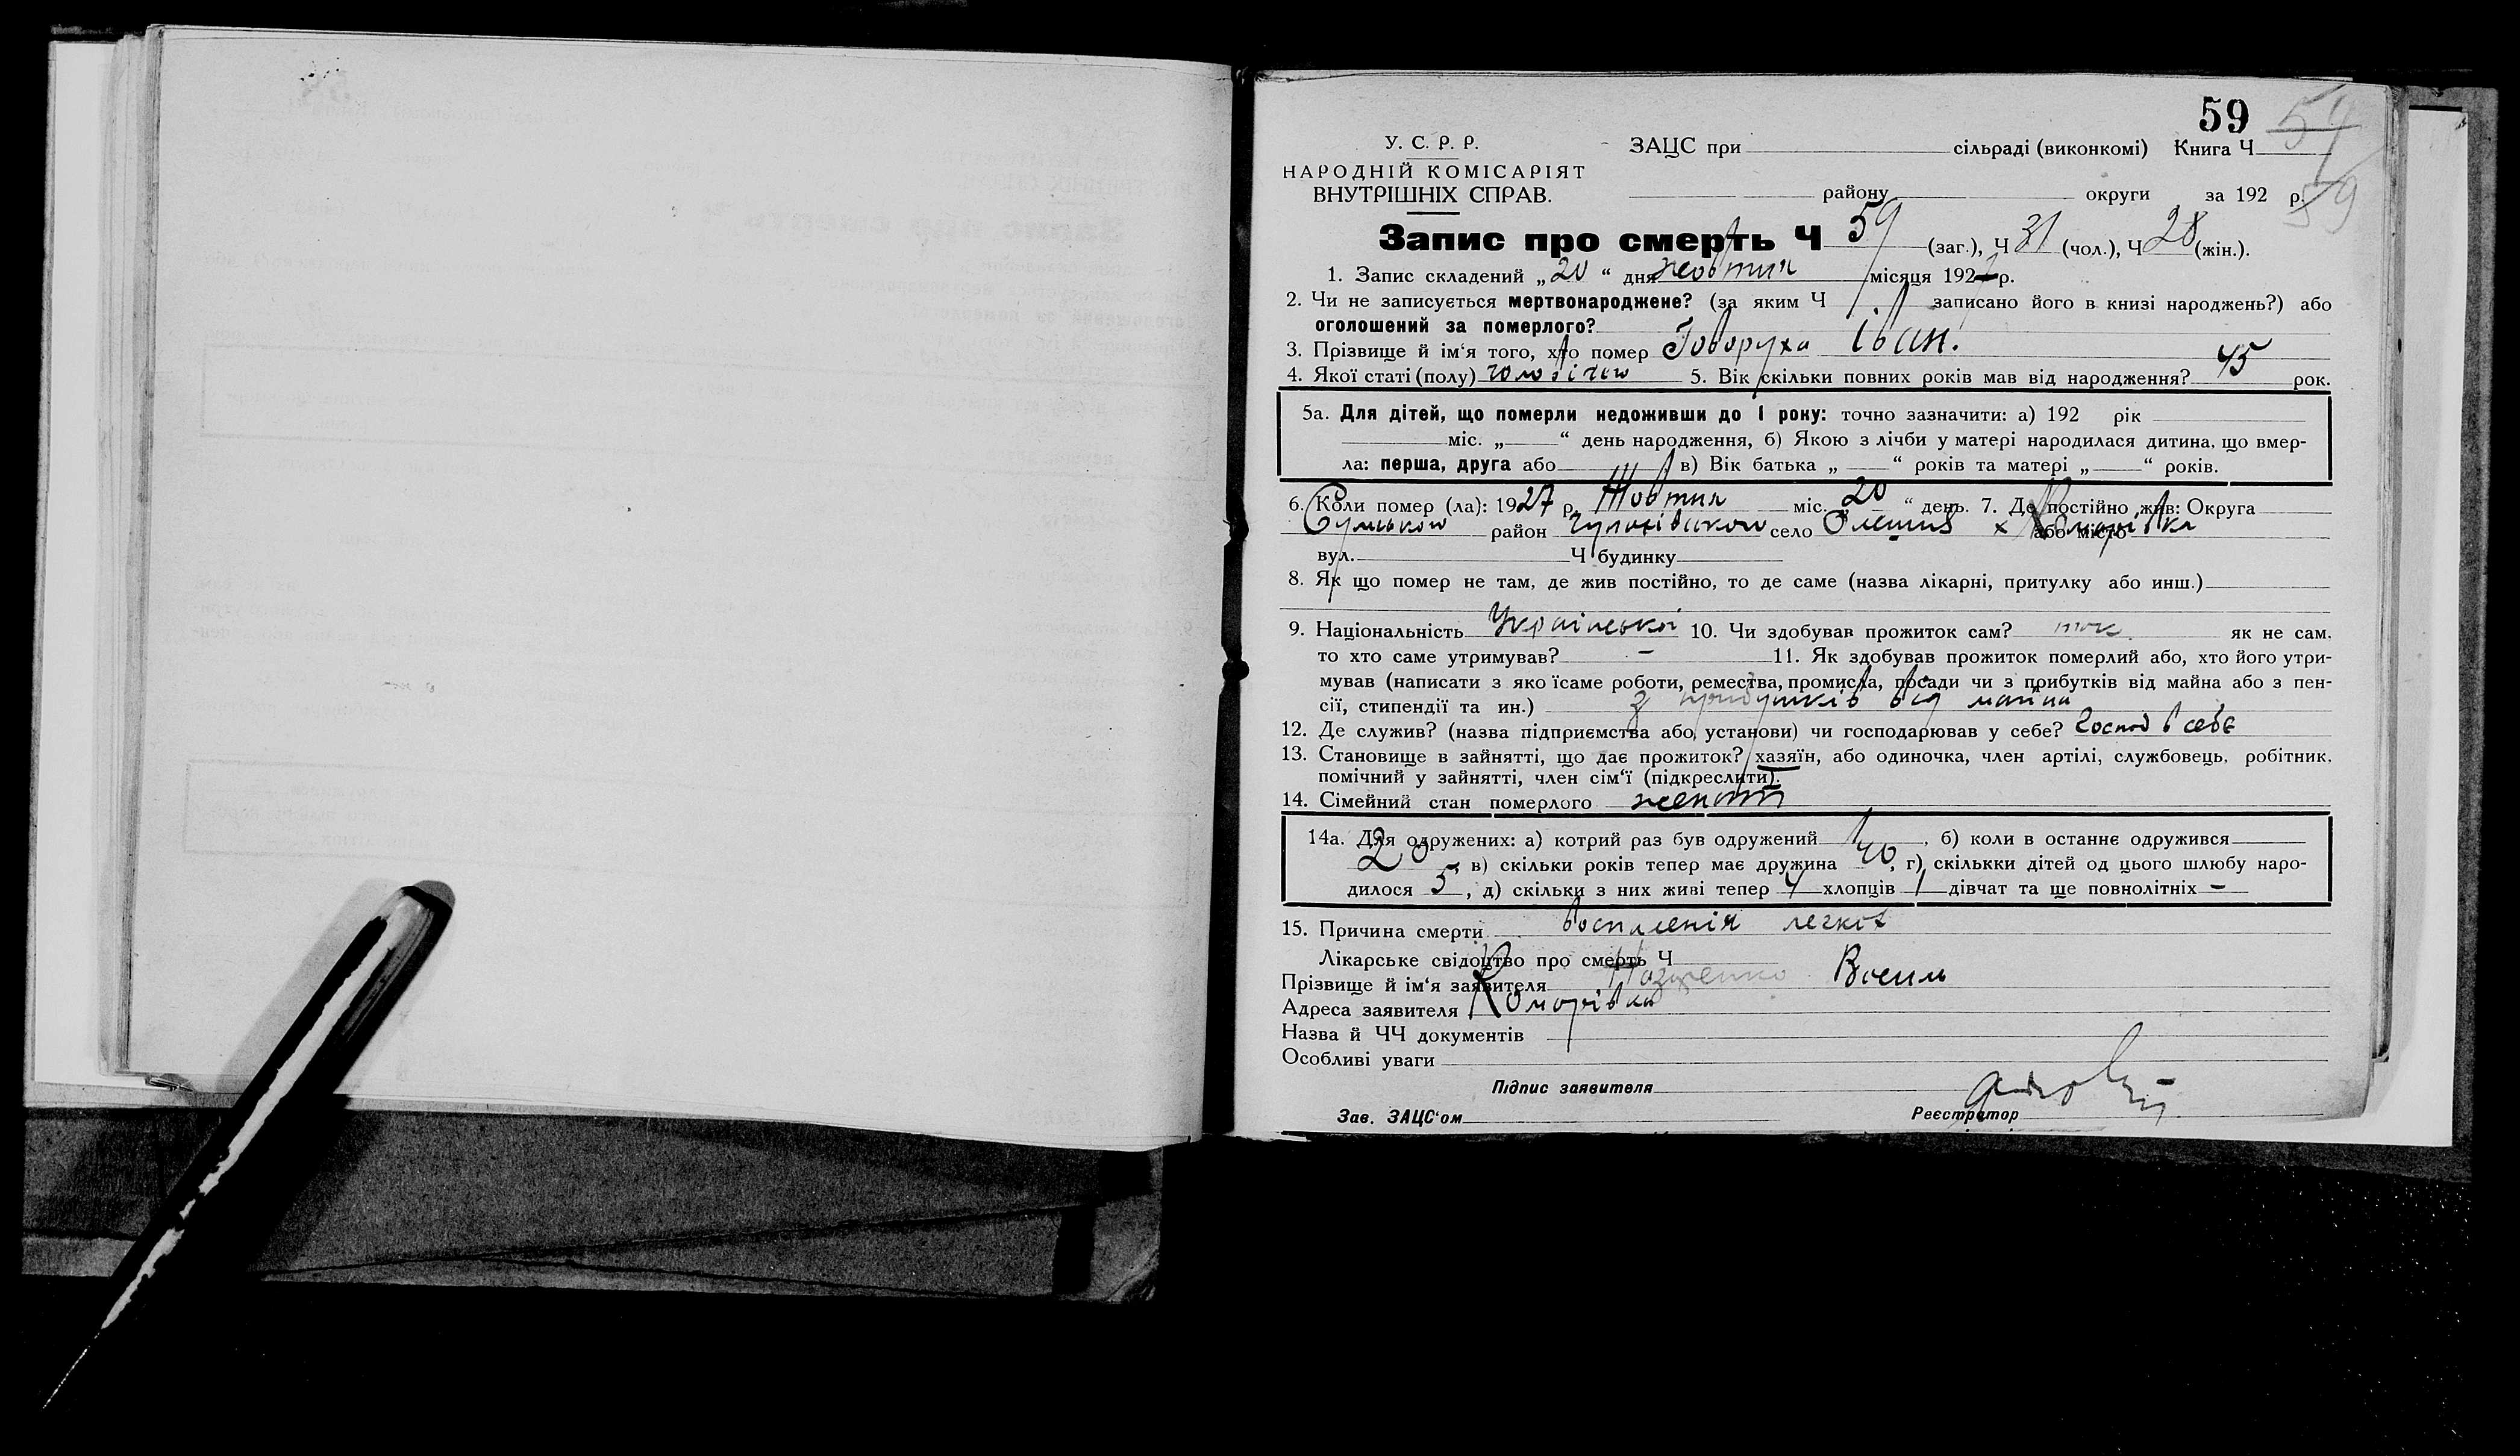 59 54
59
У. С. Р. Р.
НАРОДНІЙ КОМІСАРІЯТ
ВНУТРІШНІХ СПРАВ.
ЗАЦС при сільраді (виконкомі) Книга Ч
району округи за 192 р.
Запис про смерть Ч 59 (заг.), Ч 31 (чол.), Ч 28 (жін.).
1. Запис складений „ 20 “ дня жовтня місяця 1927 р.
2. Чи не записується мертвонароджене? (за яким Ч записано його в книзі народжень?) або
оголошений за померлого?
3. Прізвище й ім‘я того, хто помер Говоруха Іван.
4. Якої статі (полу) чоловічої 5. Вік скільки повних років мав від народження? 45 рок.
5а. Для дітей, що померли недоживши до 1 року: точно зазначити: а) 192 рік
міс. „ “ день народження, б) Якою з лічби у матері народилася дитина, що вмер-
ла: перша, друга або в) Вік батька „ “ років та матері „ “ років.
6. Коли помер (ла): 1927 р. Жовтня міс. „ 20 “ день. 7. Де постійно жив: Округа
Сумської район село х Коморівка або місто
вул. Ч будинку
8. Як що помер не там, де жив постійно, то де саме (назва лікарні, притулку або инш.)
9. Національність Української 10. Чи здобував прожиток сам? так як не сам,
то хто саме утримував? – 11. Як здобував прожиток померлий або, хто його утри-
мував (написати з яко їсаме роботи, ремества, промисла, посади чи з прибутків від майна або з пен-
сії, стипендії та ин.) з прибутків від майна
12. Де служив? (назва підприємства або установи) чи господарював у себе? Господ в себе
13. Становище в зайнятті, що дає прожиток? хазяїн, або одиночка, член артілі, службовець, робітник,
помічний у зайнятті, член сім‘ї (підкреслити).
14. Сімейний стан померлого
14а. Для одружених: а) котрий раз був одружений 1, б) коли в останнє одружився
20 в) скільки років тепер має дружина 40, г) скількки дітей од цього шлюбу наро-
дилося 5, д) скільки з них живі тепер 4 хлопців 1 дівчат та ще повнолітніх –
15. Причина смерти воспаленія легких
Лікарське свідоцтво про смерть Ч
Прізвище й ім‘я заявителя Василь
Адреса заявителя Коморівка
Назва й ЧЧ документів
Особливі уваги
Підпис заявителя
Зав. ЗАЦС‘ом Реєстратор